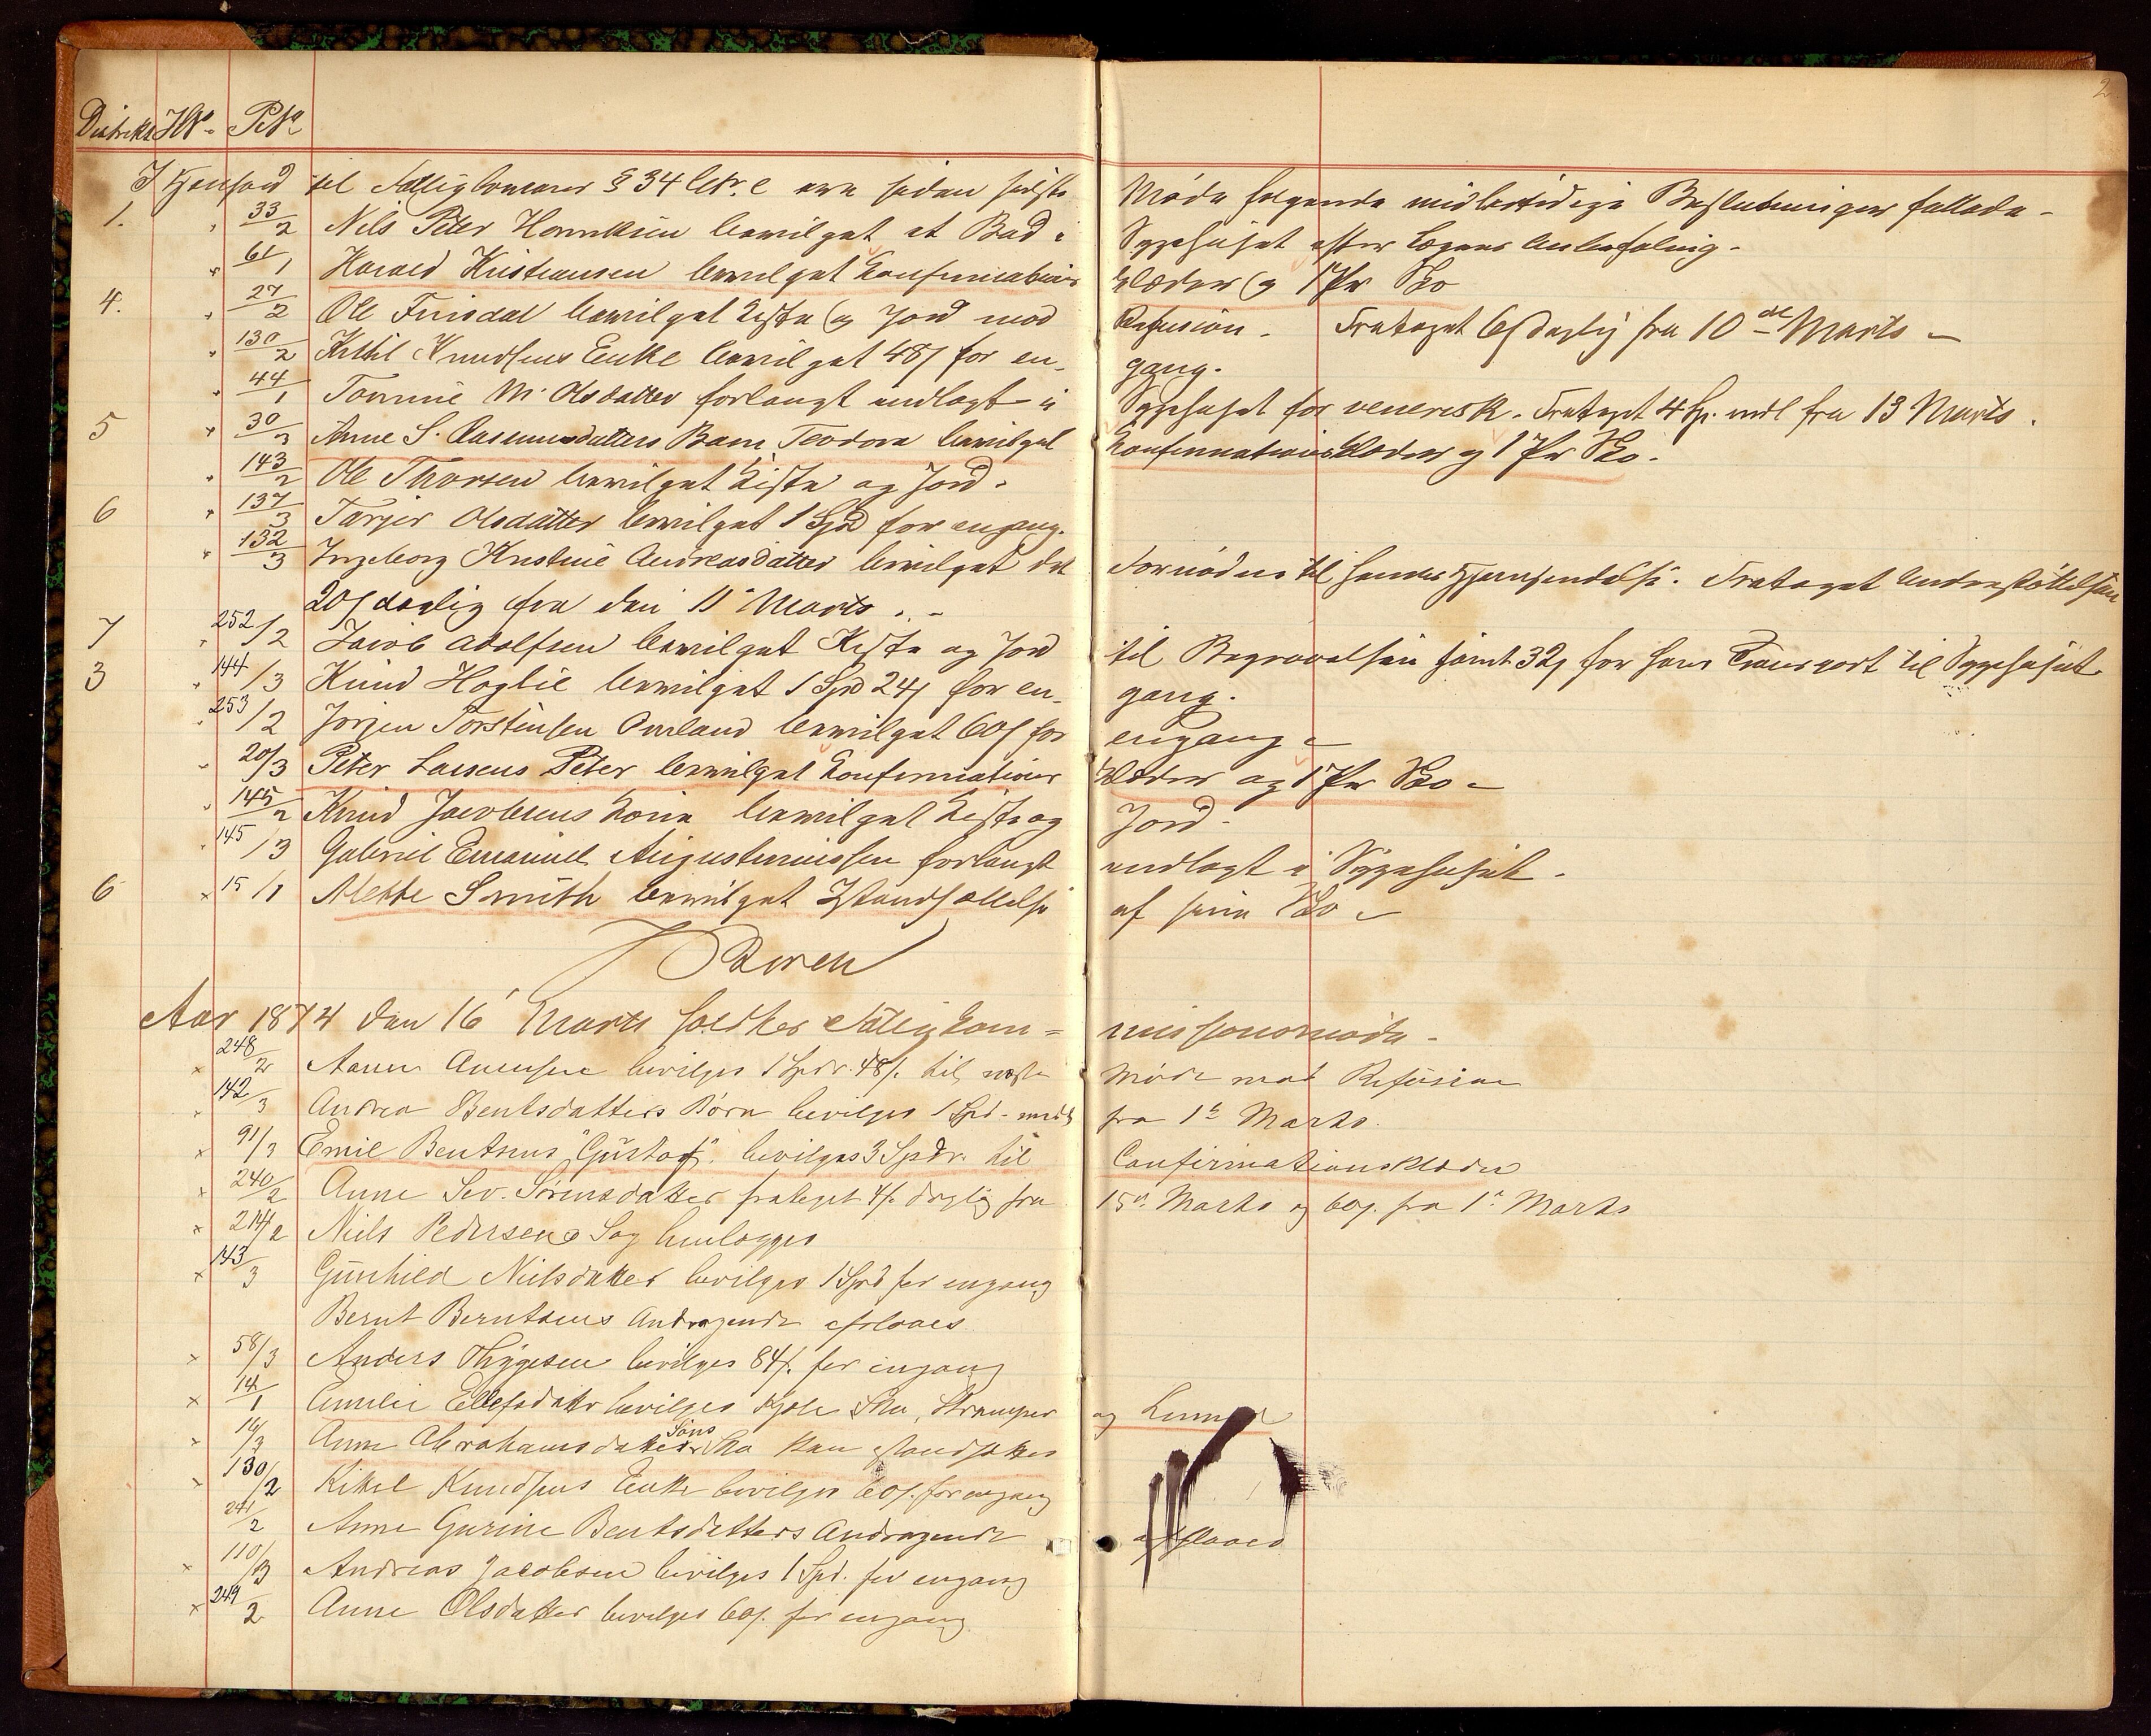 2
Distrikt HN⁰. PN⁰
I Henhold til Fattiglovens § 34 litr. c ere siden sidste Møde følgende midlertidige Beslutninger fattede -
1. " 33/2 Nils Peter Henriksen bevilget et Bad i Sygehuset efter Lægens Anbefaling.
" 61/1 Harald Kristiansen bevilget Konfirmations klæder og 1 Par Sko
4. " 27/2 Ole Finsdal bevilget Kiste og Jord mod Refusion. Frataget 6 ſ daglig fra 10de Marts -
" 130/2 Kittil Knudsens Enke bevilget 48 ſ for en- gang.
" 44/1 Tomine M. Olsdatter forlangt indlagt i Sygehuset for venerisk. Frataget 4 Sp. mdl fra 13 Marts.
5 " 30/3 Anne S. Rasmusdatters Barn Teodora bevilget Konfirmationsklæder og 1 Par Sko.
" 143/2 Ole Thorsen bevilget Kiste og Jord.
6 " 137/3 Tarjer Olsdatter bevilget 1 Spd for engang.
" 132/3 Ingeborg Kristine Andreasdatter bevilget det Fornødne til hendes Hjemsendelse. Frataget Understøttelsen
20 ſ daglig fra den 11' Marts. -
7 " 252/2 Jacob Adolfsen bevilget Kiste og Jord til Begravelsen samt 32 ſ for hans Transport til Sygehuset.
3 " 144/3 Knud Høglie bevilget 1 Spd 24 ſ for en- gang.
" 253/2 Jørgen Torstensen Omland bevilget 60 ſ for engang -
" 20/3 Peter Larsens Peter bevilget Konfirmations klæder og 1 Par Sko -
" 145/2 Knud Jacobsens Kone bevilget Kiste og Jord.
" 145/3 Gabriel Emanuel Augustinussen forlangt indlagt i Sygehuset.
6 × 15/1 Mette Smith bevilget Istandsættelse af sine Sko -
Aar 1874 den 16' Marts holdtes Fattigkom= missionsmøde -
× 248/2 Aanen Aanensen bevilges 1 Spdr. 48 ſ. til næste Møde mod Refusion
" 142/3 Andrea Bentsdatters Børn bevilges 1 Spd. mdl fra 1' Marts.
× 91/3 Emil Bentsens "Gustav". bevilges 3 Spdr. til Confirmationsklæder
× 240/2 Anne Sev. Sørensdatter frataget 4 ſ. daglig fra 15' Marts og 60 ſ. fra 1' Marts
× 214/2 Niels Pedersens Sag henlægges
× 143/3 Gunhild Nielsdatter bevilges 1 Spd for engang
Bernt Berntsens Andragende afslaaes
× 58/3 Anders Thygesen bevilges 84 ſ. for engang
× 14/1 Amalie Ellefsdatter bevilges Kjole Sko, Strømper og Linned
× 14/3 Anne Abrahamsdatters Søns Sko kan istandsættes
× 130/2 Kittel Knudsens Enke bevilges 60 ſ. for engang
241/2 Anne Gurine Bentsdatters Andragende afslaaes
× 110/3 Andreas Jacobsen bevilges 1 Spd. for engang
× 249/2 Anne Olsdatter bevilges 60 ſ. for engang